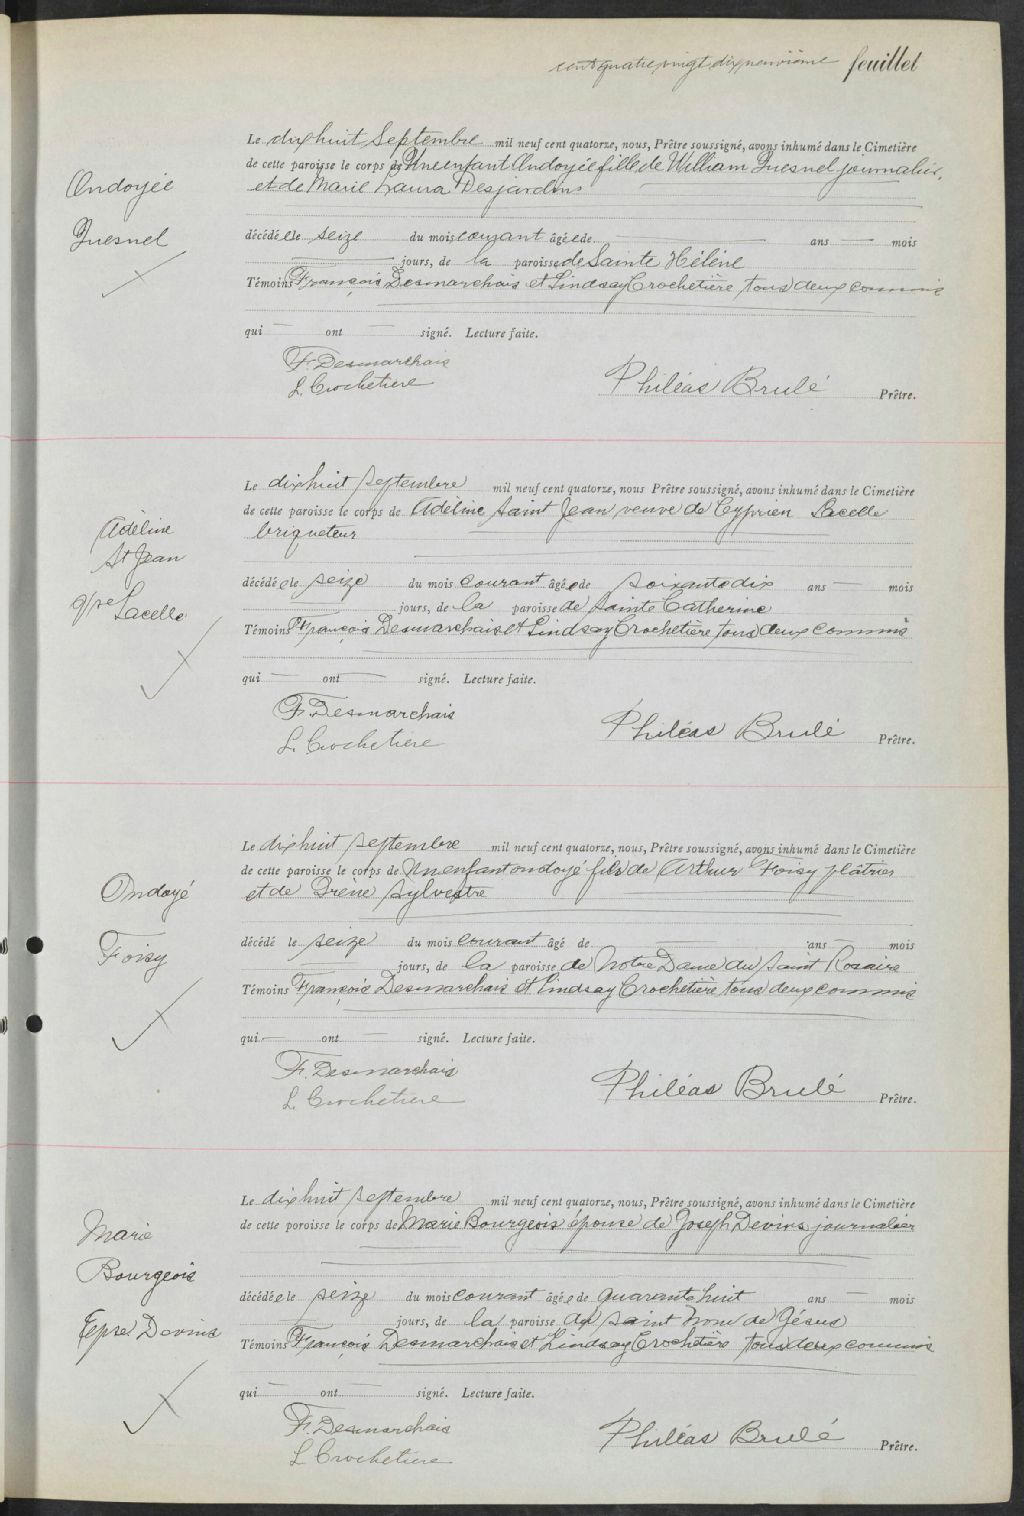 cent quatre vingt dix neuvième feuillet
Le dix huit Septembre mil neuf cent quatorze, nous, Prêtre soussigné, avons inhumé dans le Cimetière
de cette paroisse le corps de Une enfant Ondoyée fille de William Quesnel journalier,
et de Marie Laura Desjardins
Ondoyée
Quesnel
décédée le seize du mois courant âgée de ans mois
jours, de la paroisse de Sainte Hélène
Témoins François Desmarchais et Lindsay Crochetière tous deux commis
qui ont signé. Lecture faite.
F. Desmarchais
L. Crochetiere
Philéas Brulé Prêtre.
Le dix huit septembre mil neuf cent quatorze, nous Prêtre soussigné, avons inhumé dans le Cimetière
de cette paroisse le corps de Adéline Saint Jean veuve de Cyprien Lacelle
briqueteur
Adéline
St Jean
Lacelle
décédée le seize du mois courant âgée de soixante dix ans mois
jours, de la paroisse de Sainte Catherine
Témoins François Desmarchais et Lindsay Crochetière tous deux commis
qui ont signé. Lecture faite.
F. Desmarchais
L. Crochetiere
Philéas Brulé Prêtre.
Le dix huit septembre mil neuf cent quatorze, nous, Prêtre soussigné, avons inhumé dans le Cimetière
de cette paroisse le corps de Un enfant ondoyé fils de Arthur Foisy plâtrier
et de Irène Sylvestre
Ondoyé
Foisy
décédé le seize du mois courant âgé de ans mois
jours, de la paroisse de Notre Dame du Saint Rosaire
Témoins François Desmarchais et Lindsay Crochetière tous deux commis
qui ont signé. Lecture faite.
F. Desmarchais
L. Crochetiere
Philéas Brulé Prêtre.
Le dix huit septembre mil neuf cent quatorze, nous, Prêtre soussigné, avons inhumé dans le Cimetière
de cette paroisse le corps de Marie Bourgeois épouse de Joseph Devins journalier
Marie
Bourgeois
Epse Devins
décédée le seize du mois courant âgée de quarante huit ans mois
jours, de la paroisse du Saint Nom de Jésus
Témoins François Desmarchais et Lindsay Crochetière tous deux commis
qui ont signé. Lecture faite.
F. Desmarchais
L. Crochetiere
Philéas Brulé Prêtre.